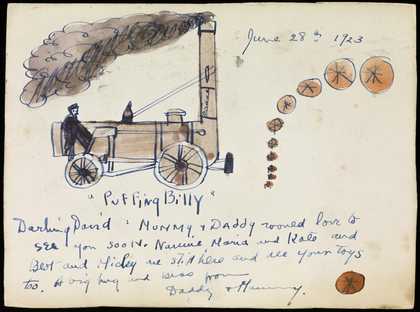 June 28th 1923
"Puffing Billy"
Darling David : Mummy & Daddy would love to
see you soon. Nannie, Maria and Kate and
Best and Mickey are still here and see your toys
too. A big hug and kiss from
Daddy & Mummy.